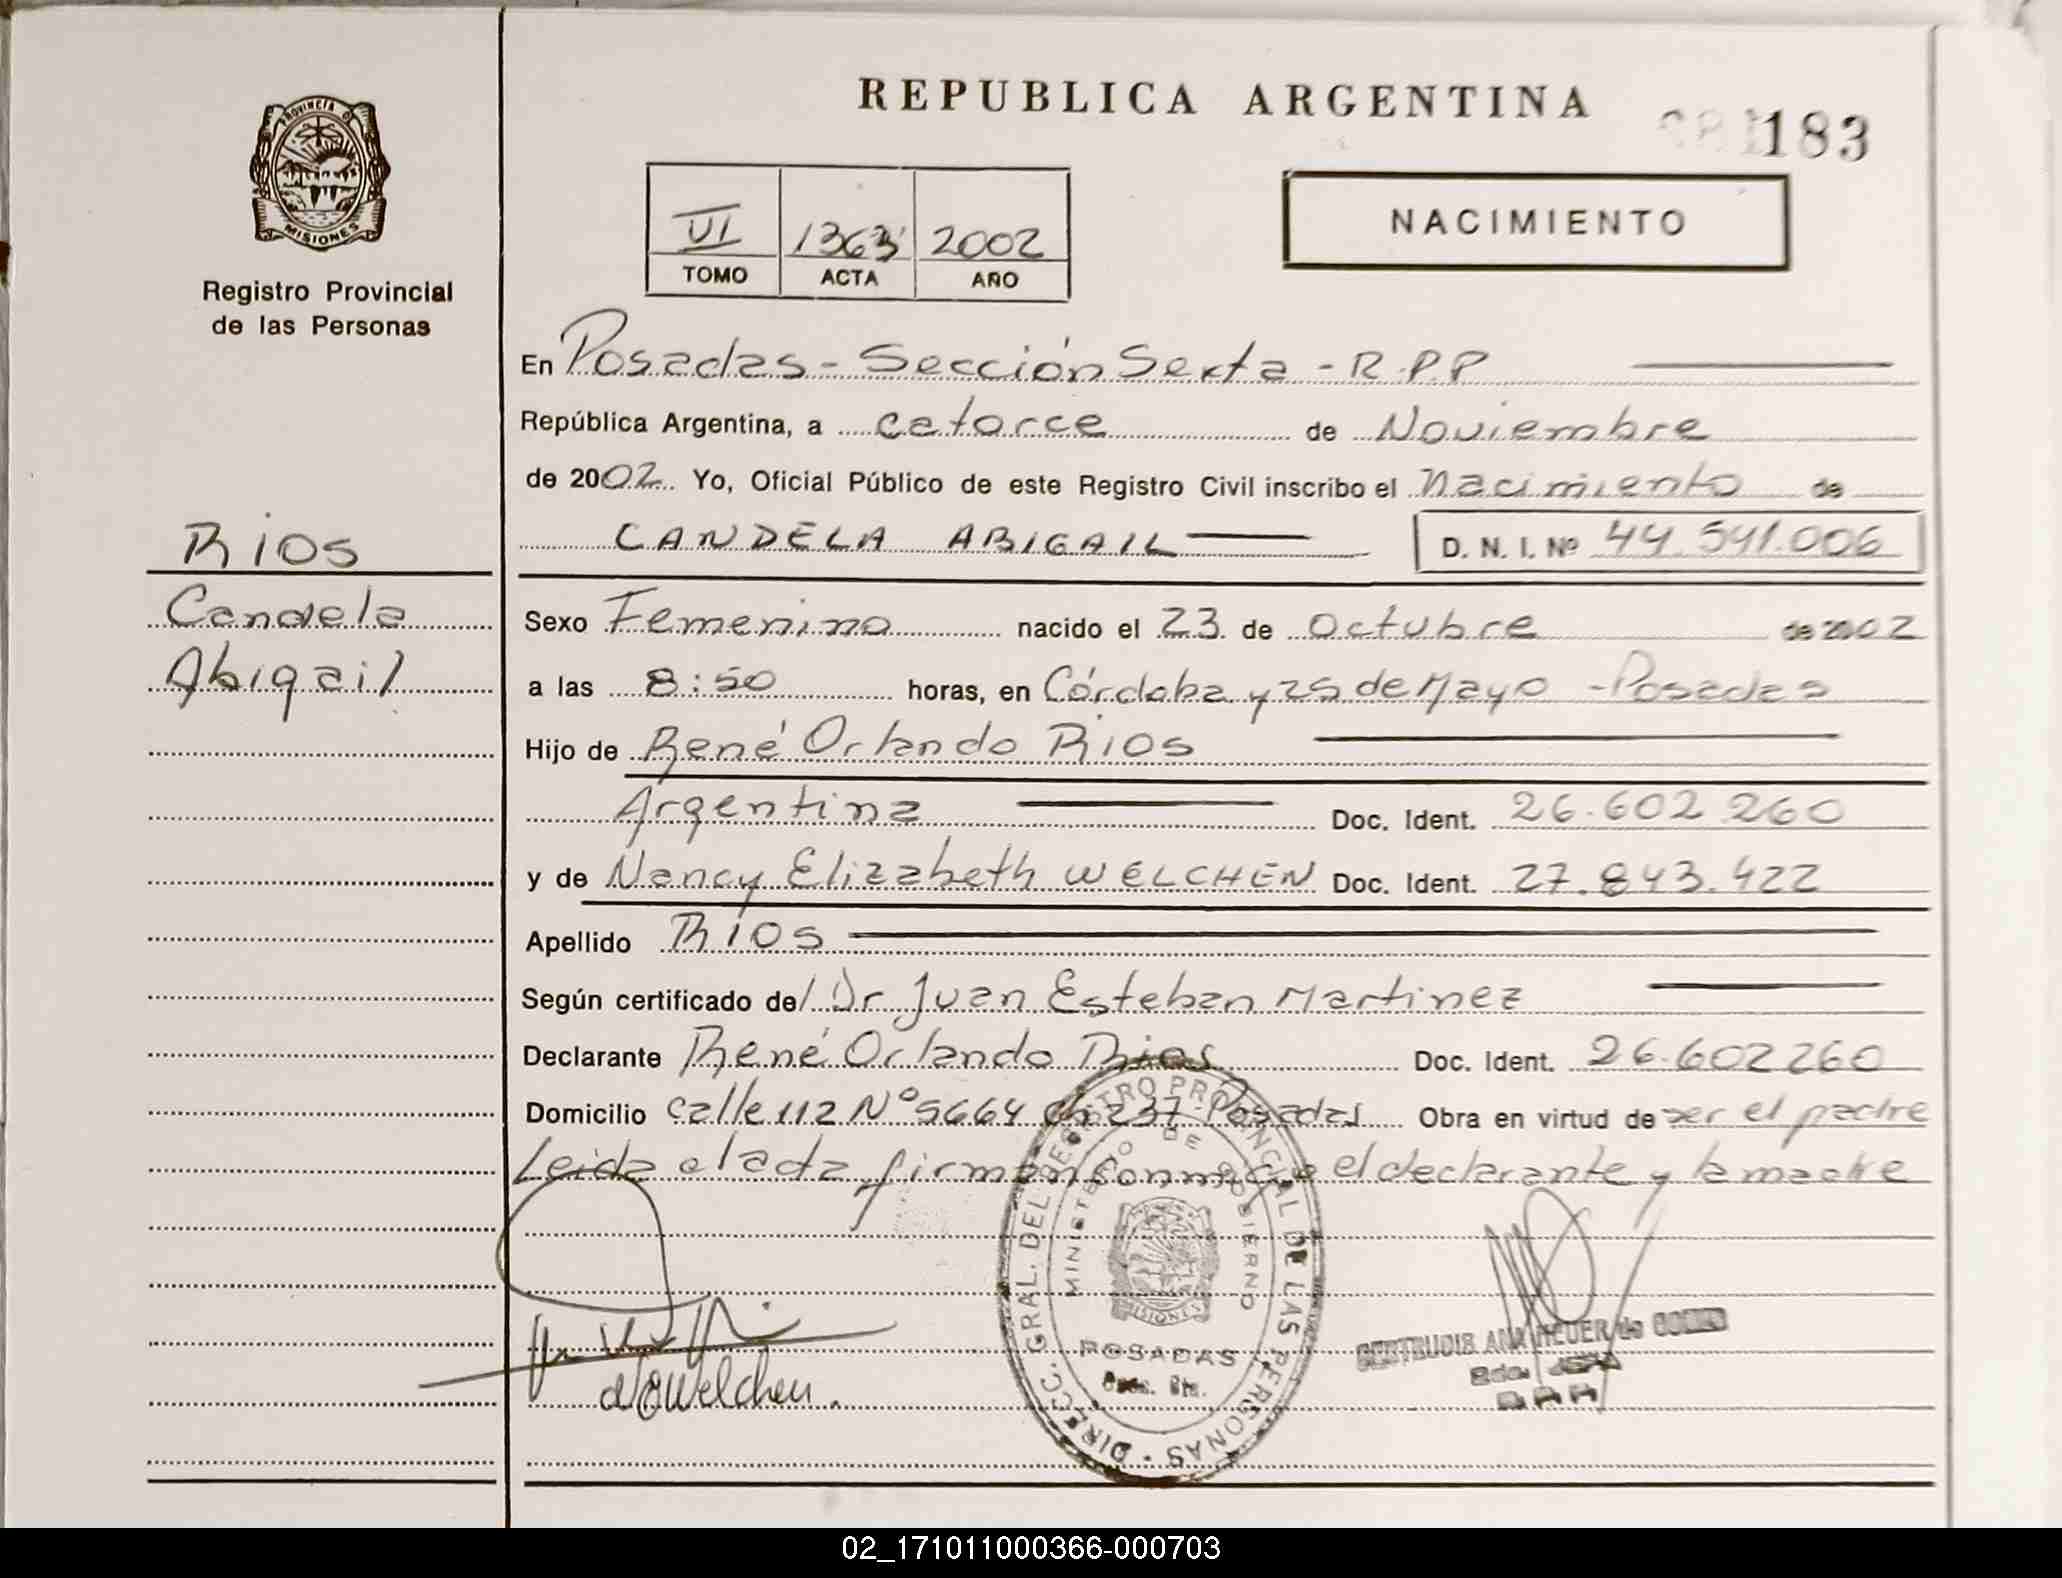 REPUBLICA ARGENTINA
183
PROVINCIA DE
MISIONES
Registro Provincial
de las Personas
VI 1363 2002
TOMO ACTA AÑO
NACIMIENTO
En Posadas - Sección Sexta - R.P.P
República Argentina, a catorce de Noviembre
de 2002. Yo, Oficial Público de este Registro Civil inscribo el nacimiento de
CANDELA ABIGAIL D. N. I. Nº 44.541.006
Rios
Candela
Abigail
Sexo Femenino nacido el 23 de octubre de 2002
a las 8:50 horas, en Córdoba y 25 de Mayo - Posadas
Hijo de René Orlando Rios
Argentina Doc. Ident. 26.602 260
y de Nancy Elizabeth WELCHEN Doc. Ident. 27.843.422
Apellido Rios
Según certificado del Dr Juan Esteban Martinez
Declarante René Orlando Rios Doc. Ident. 26.602 260
Domicilio calle 112 Nº 5664 ch 237 - Posadas Obra en virtud de ser el padre
Leida el acta firman conmigo el declarante y la madre
DIRECC. GRAL. DEL REGISTRO PROVINCIAL DE LAS PERSONAS
MINISTERIO DE GOBIERNO
MISIONES
POSADAS
Secc. 6ta.
NEWelchen.
GERTRUDIS ANA
02_171011000366-000703